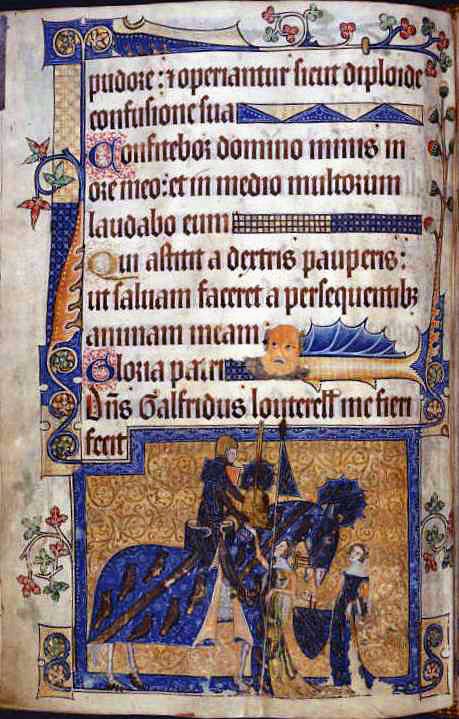 pudore: ⁊ operiantur sicut diploide
confusione sua
Confitebor domino nimis in
ore meo: et in medio multorum
laudabo eum
Qui astitit a dextris pauperis:
ut saluam faceret a persequentibꝫ
animam meam:
Gloria patri
Dñs Galfridus louterell me fieri
fecit